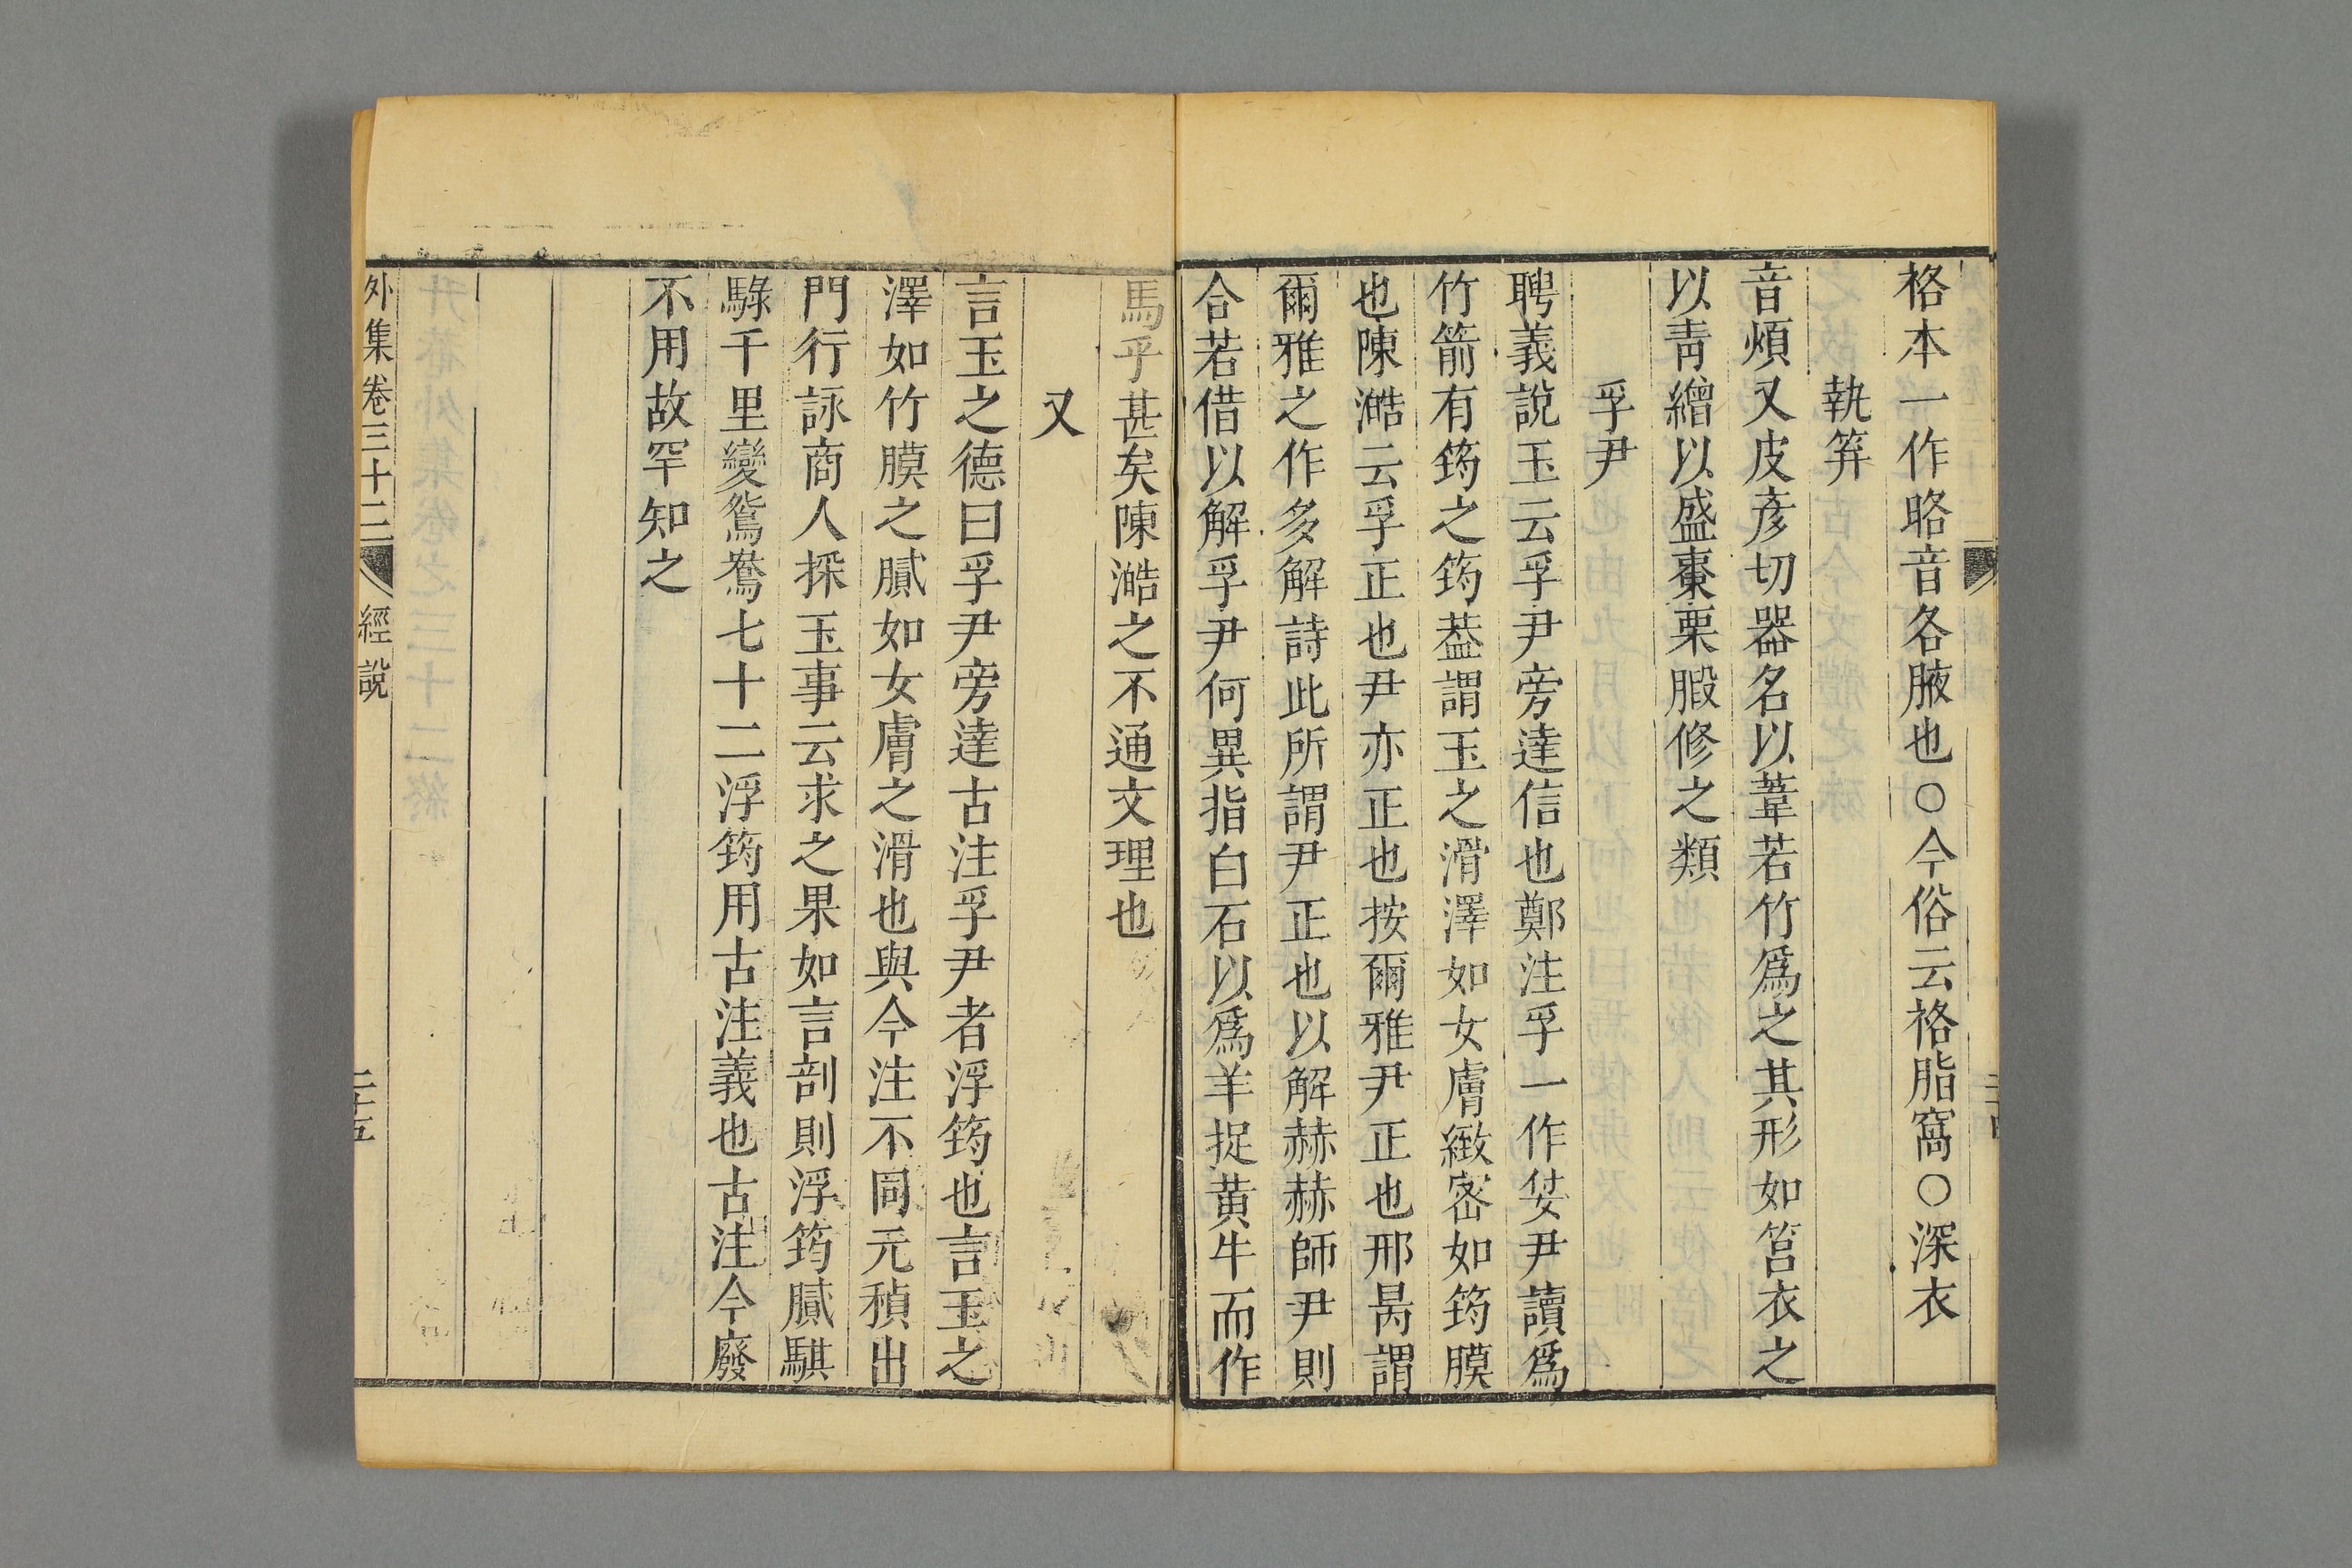 袼本一作略音各腋也○今俗云袼脂窩○深衣
執笲
音煩又皮彥切器名以葦若竹爲之其形如筥衣之
以青繒以盛棗栗腶修之類
孚尹
聘義說玉云孚尹旁達信也鄭注孚一作姇尹讀爲
竹箭有筠之筠葢謂玉之滑澤如女膚緻宻如筠膜
也陳澔云孚正也尹亦正也按爾雅尹正也邢昺謂
爾雅之作多解詩此所謂尹正也以解赫赫師尹則
合若借以解孚尹何異指白石以爲羊捉黄牛而作
馬乎甚矣陳澔之不通文理也
又
言玉之德曰孚尹旁達古注孚尹者浮筠也言玉之
澤如竹膜之膩如女膚之滑也與今注不同元稹出
門行詠商人採玉事云求之果如言剖則浮筠膩騏
騄千里變鴛鴦七十二浮筠用古注義也古注今廢
不用故罕知之
外集卷三十二 經說 二十五